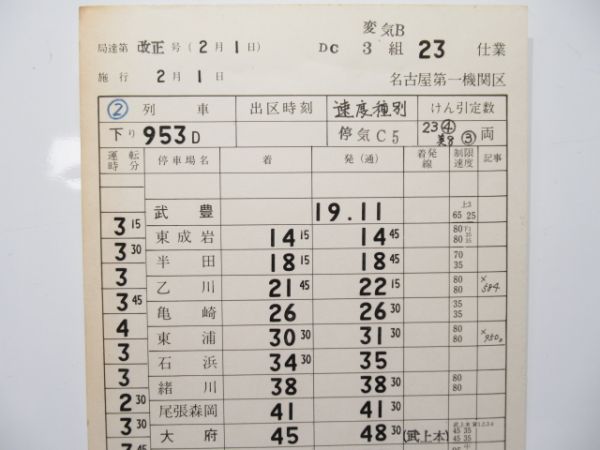 変気B
局達第 改正 号(2月1日) DC 3組 23 仕業
施行 2月1日 名古屋第一機関区
② 列車 出区時刻 速度種別 けん引定数
下り 953D 停気C5 23④ 美8③ 両
運転時分 停車場名 着 発(通) 着発線 制限速度 記事
武豊 19.11 上3 65 25
3 15
東成岩 14 15 14 45 80 下1 35 80 35
3 30
半田 18 15 18 45 70 35
3
乙川 21 45 22 15 80 80 × 584
3 45
亀崎 26 26 30 35 35
4
東浦 30 30 31 30 80 80
3
石浜 34 30 35
3
緒川 38 38 30 80 80
2 30
尾張森岡 41 41 30
3 30
大府 45 48 30 (武上本) 45 35 45 35
3 45